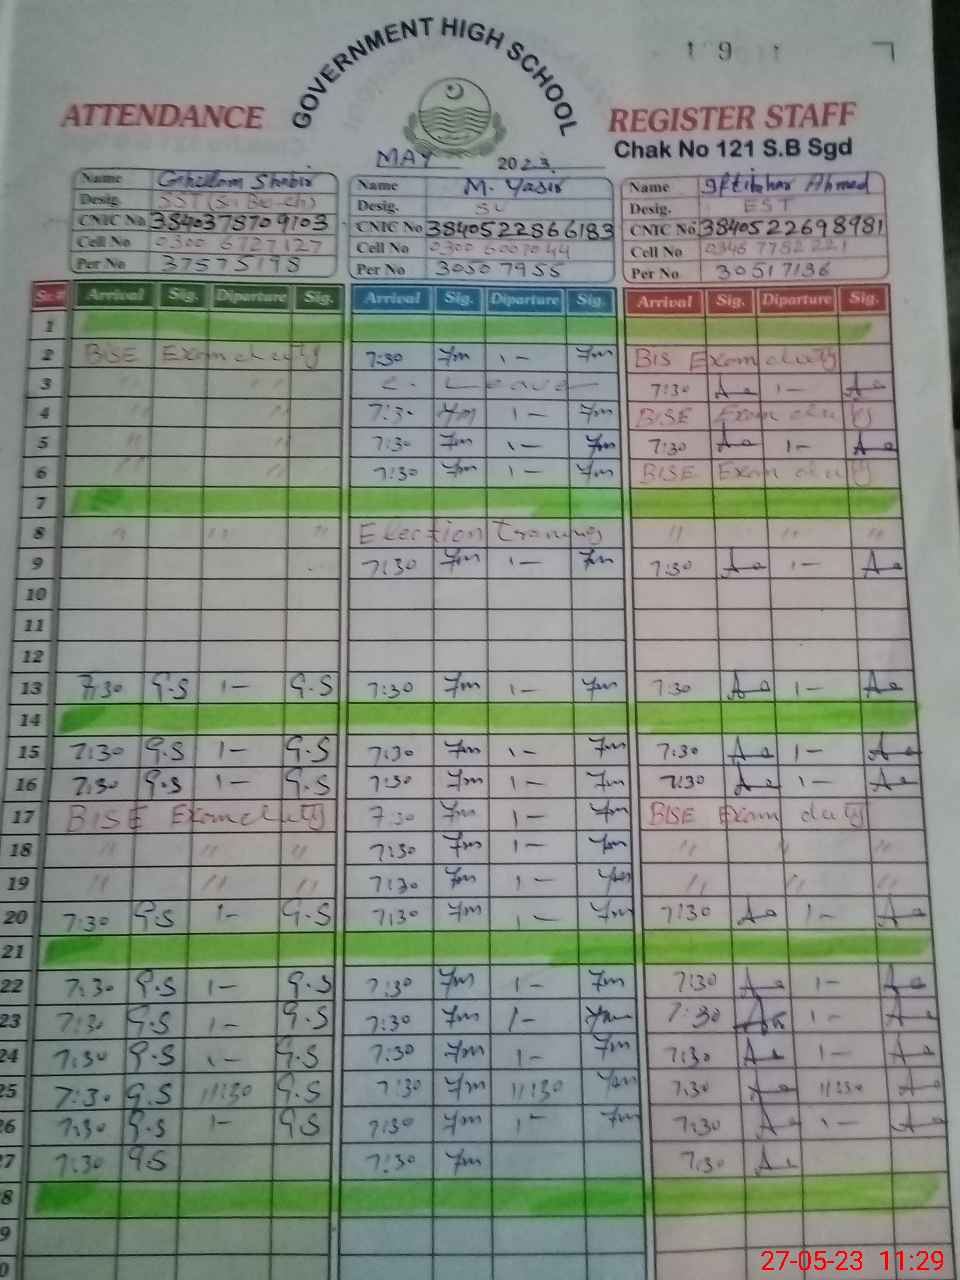 GOVERNMENT HIGH SCHOOL
ATTENDANCE REGISTER STAFF
Chak No 121 S.B Sgd
MAY 2023
Name Ghulam Shabir Name M. Yasir Name Iftikhar Ahmed
Desig. SST Desig. Desig. EST
CNIC No 3840378709103 CNIC No 3840522866183 CNIC No 3840522698981
Cell No 0300 6727127 Cell No Cell No
Per No 37575198 Per No 30507955 Per No 30517136
Sr.# Arrival Sig. Diparture Sig. Arrival Sig. Diparture Sig. Arrival Sig. Diparture Sig.
1
2 BISE Exam duty 7:30 Ym 1- Ym BIS Exam duty
3 " " Leave 7:30 1-
4 " " 7:30 Ym 1- Ym BISE Exam duty
5 " " 7:30 Ym 1- Ym 7:30 1-
6 " " 7:30 Ym 1- Ym BISE Exam duty
7
8 " " " Election Training " " "
9 7:30 Ym 1- Ym 7:30 1-
10
11
12
13 7:30 G.S 1- G.S 7:30 Ym 1- Ym 7:30 1-
14
15 7:30 G.S 1- G.S 7:30 Ym 1- Ym 7:30 1-
16 7:30 G.S 1- G.S 7:30 Ym 1- Ym 7:30 1-
17 BISE Exam duty 7:30 Ym 1- Ym BISE Exam duty
18 " " " 7:30 Ym 1- Ym " " "
19 " " " 7:30 Ym 1- Ym " " "
20 7:30 G.S 1- G.S 7:30 Ym 1- Ym 7:30 1-
21
22 7:30 G.S 1- G.S 7:30 Ym 1- Ym 7:30 1-
23 7:30 G.S 1- G.S 7:30 Ym 1- Ym 7:30 1-
24 7:30 G.S 1- G.S 7:30 Ym 1- Ym 7:30 1-
25 7:30 G.S 11:30 G.S 7:30 Ym 11:30 Ym 7:30 11:30
26 7:30 G.S 1- G.S 7:30 Ym 1- Ym 7:30 1-
27 7:30 G.S 7:30 Ym 7:30
8
9
0
27-05-23 11:29